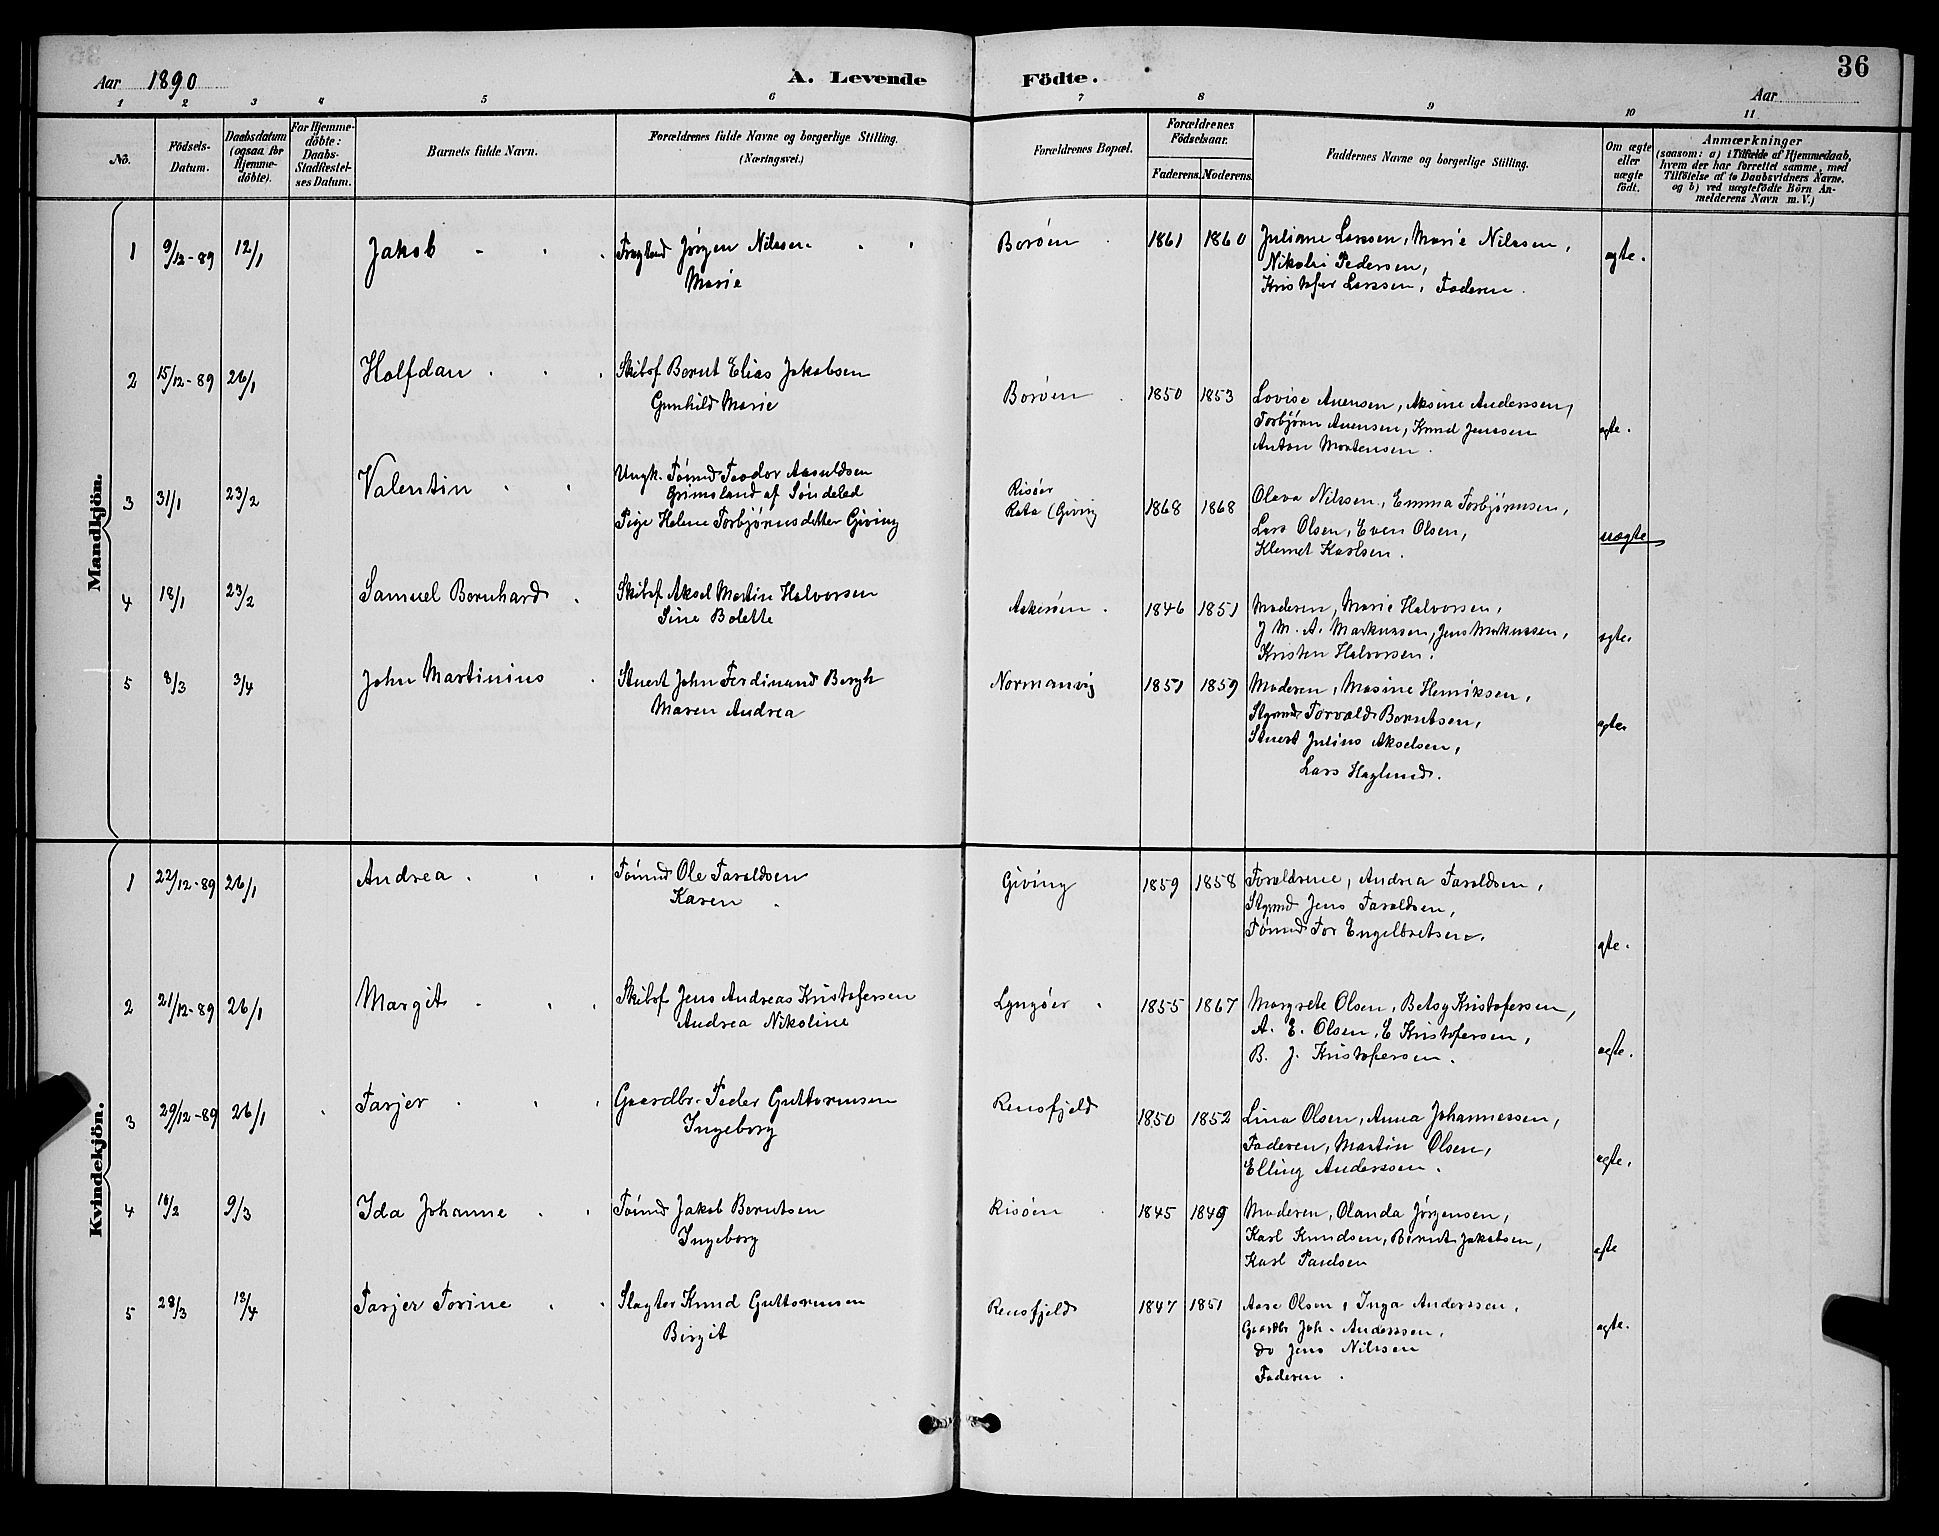 Aar 1890
A. Levende Födte.
36
Aar
1 2 3 4 5 6 7 8 9 10 11
No.
Födsels-Datum.
Daabsdatum (ogsaa for Hjemme-döbte).
For Hjemme-döbte: Daabs-Stadfæstel-ses Datum.
Barnets fulde Navn.
Forældrenes fulde Navne og borgerlige Stilling. (Næringsvei.)
Forældrenes Bopæl.
Forældrenes Födselsaar.
Faderens. Moderens.
Faddernes Navne og borgerlige Stilling.
Om ægte eller uægte födt.
Anmærkninger
(saasom: a) i Tilfælde af Hjemmedaab,
hvem der har forrettet samme, med
Tilföielse af to Daabsvidners Navne.
og b) ved uægtefödte Börn An-
melderens Navn m. V.)
Mandkjön.
1 9/12-89 12/1 Jakob Jørgen Nilssen Borøen 1861 1860 Juliane Larssen, Marie Nilssen, ægte.
Marie Nikolai Pedersen,
Kristofer Larssen, Faderen.
2 15/12-89 26/1 Halfdan Skibsf Bernt Elias Jakobsen Borøen 1850 1853 Lovise Auensen, Aksine Anderssen, ægte.
Gunhild Marie Torbjørn Auensen, Knud Jenssen
Anton Mortensen.
3 31/1 23/2 Valentin Ungk. Tømmd Teodor Aasuldsen Risøer 1868 1868 Olava Nilssen, Emma Torbjørnsen, uægte
Grimsland af Søndeled Rata (Giving Lars Olsen, Even Olsen,
Pige Helene Torbjørnsdetter Giving Klemet Karlsen.
4 18/1 23/2 Samuel Bernhard Skibsf Aksel Martin Halvorsen Askerøen 1846 1851 Moderen, Marie Halvorsen, ægte.
Sine Bolette J M. A. Markussen, Jens Markussen,
Kristen Halvorsen.
5 8/3 3/4 John Martinius Stuert John Ferdinand Bergh Normanvig 1851 1859 Moderen, Masine Henriksen, ægte
Maren Andrea Stymd Torvald Berntsen,
Stuert Julius Akselsen,
Lars Haglund.
Kvindekjön.
1 22/12-89 26/1 Andrea Tømmd Ole Taraldsen Giving 1859 1858 Forældrene, Andrea Taraldsen, ægte.
Karen Stymd Jens Taraldsen,
Tømmd Tor Engelbretsen.
2 21/12-89 26/1 Margit Skibsf Jens Andreas Kristofersen Lyngøer 1855 1867 Margrete Olsen, Betsy Kristofersen, ægte.
Andrea Nikoline A. E. Olsen, E Kristofersen,
B. J. Kristofersen.
3 29/12-89 26/1 Tarjer Gaardbr. Peder Guttormsen Rensfjeld 1850 1852 Lina Olsen, Anna Johannessen, ægte.
Ingeborg Faderen, Martin Olsen,
Elling Anderssen.
4 10/2 9/3 Ida Johanne Tømmd Jakob Berntsen Risøen 1845 1849 Moderen, Olanda Jørgensen, ægte
Ingeborg Karl Knudsen, Bernt Jakobsen,
Karl Paulsen
5 28/3 13/4 Tarjer Torine Slagter Knud Guttormsen Rensfjeld 1847 1851 Aase Olsen, Inga Anderssen, ægte.
Birgit Gaardbr Joh. Anderssen,
do Jens Nilssen
Faderen.